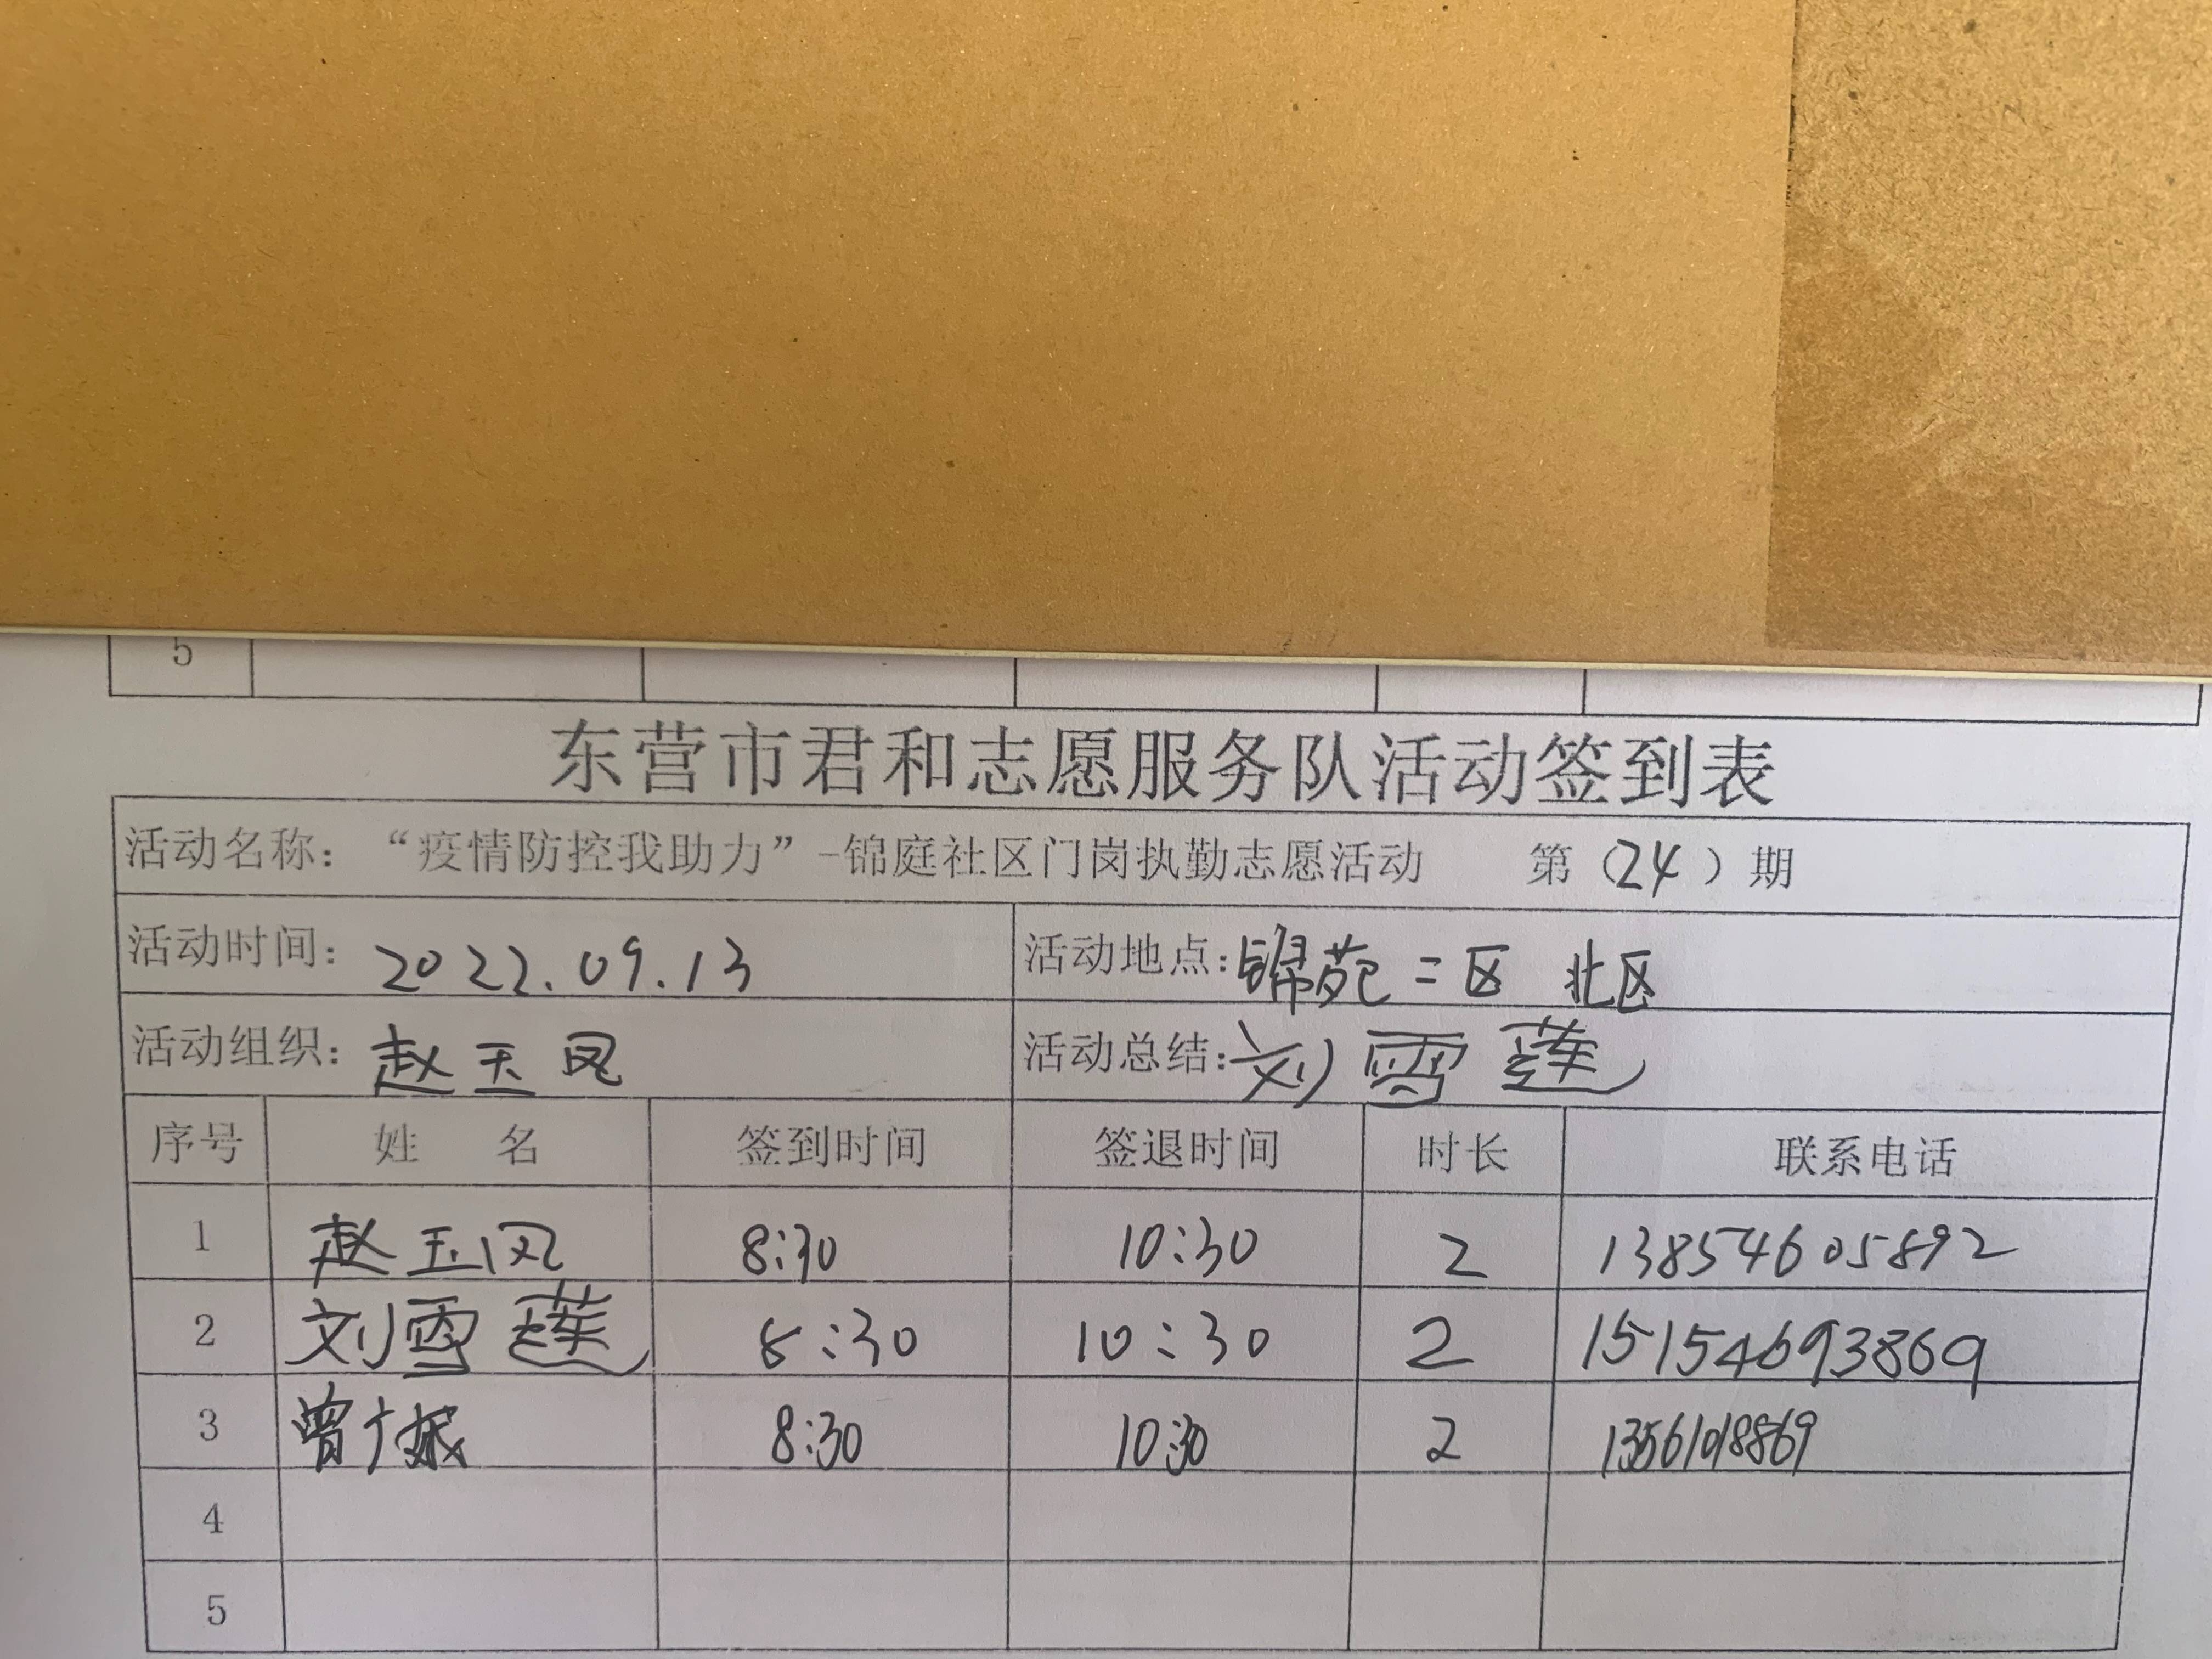 5
东营市君和志愿服务队活动签到表
活动名称：“疫情防控我助力”-锦庭社区门岗执勤志愿活动 第（24）期
活动时间：2022.09.13 活动地点：锦苑二区 北区
活动组织：赵玉凤 活动总结：刘雪莲
序号 姓 名 签到时间 签退时间 时长 联系电话
1 赵玉凤 8:30 10:30 2 13854605892
2 刘雪莲 8:30 10:30 2 15154693869
3 曾广 8:30 10:30 2 13561018869
4
5